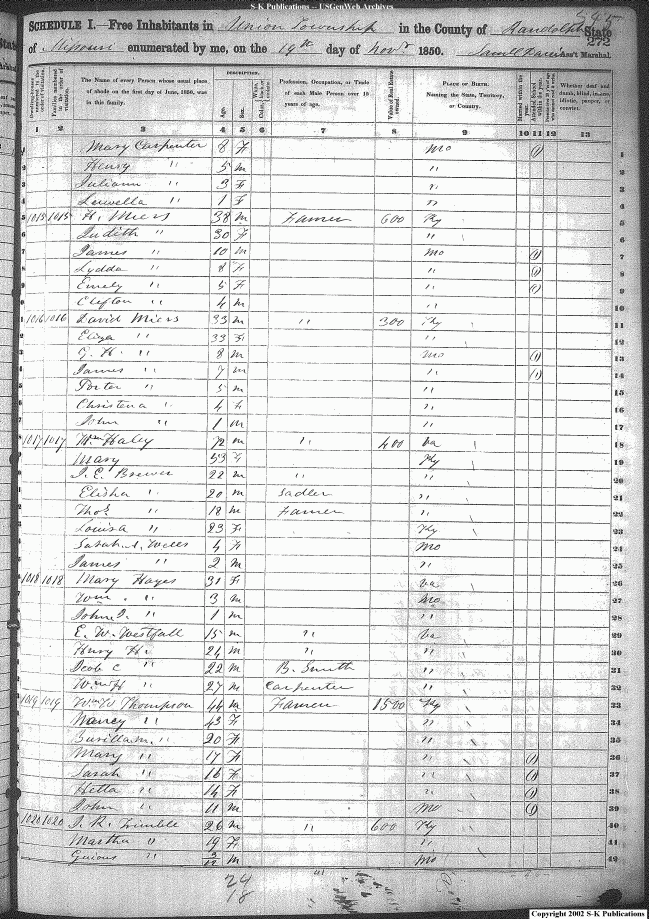 S-K Publications -- USGenWeb Archives
SCHEDULE I.—Free Inhabitants in Union Township in the County of Randolph State
of Missouri enumerated by me, on the 19th day of Novr 1850. Ass't Marshal.
272
DESCRIPTION.
The Name of every Person whose usual place of abode on the first day of June, 1850, was in this family.
Age.
Sex.
Profession, Occupation, or Trade of each Male Person over 15 years of age.
Value of Real Estate owned.
PLACE OF BIRTH. Naming the State, Territory, or Country.
Whether deaf and dumb, blind, insane, idiotic, pauper, or convict.
1 2 3 4 5 6 7 8 9 10 11 12 13
Mary Carpenter 8 F Mo (1) 1
Henry " 5 m " 2
Juliann " 3 F " 3
Luwella " 1 F " 4
1015 1015 H. Miers 38 m Farmer 600 Ky 5
Judith " 30 F " 6
James " 10 m Mo (1) 7
Lydda " 8 F " (1) 8
Emely " 5 F " (1) 9
Clefton " 4 m " 10
1016 1016 David Miers 33 m " 300 Ky 11
Eliza " 33 F " 12
" 8 m Mo (1) 13
James " 7 m " (1) 14
Porter " 5 m " 15
Christena " 4 F " 16
John " 1 m " 17
1017 1017 Wm Haley 72 m " 400 Va 18
Mary 53 F Ky 19
J. C. Brewer 22 m " " 20
Elisha " 20 m Sadler " 21
Thos " 18 m Farmer " 22
Louisa " 23 F Ky 23
Sarah A. Wells 4 F Mo 24
James " 2 m " 25
1018 1018 Mary Hayes 31 F Va 26
Wm " 3 m Mo 27
John " 1 m " 28
E. W. Westfall 15 m " Va 29
Henry H. 24 m " " 30
Jcob C " 22 m B. Smith " 31
Wm H " 27 m Carpenter " 32
1019 1019 Thompson 44 m Farmer 1500 Ky 33
Nancy " 43 F " 34
" 20 F " 35
Mary " 17 F " (1) 36
Sarah " 16 F " (1) 37
Hetta " 14 F " (1) 38
John " 11 m Mo (1) 39
1020 1020 J. R. Trimble 26 m " 600 Ky 40
Martha " 19 F " 41
" m Mo 42
24
18
Copyright 2002 S-K Publications